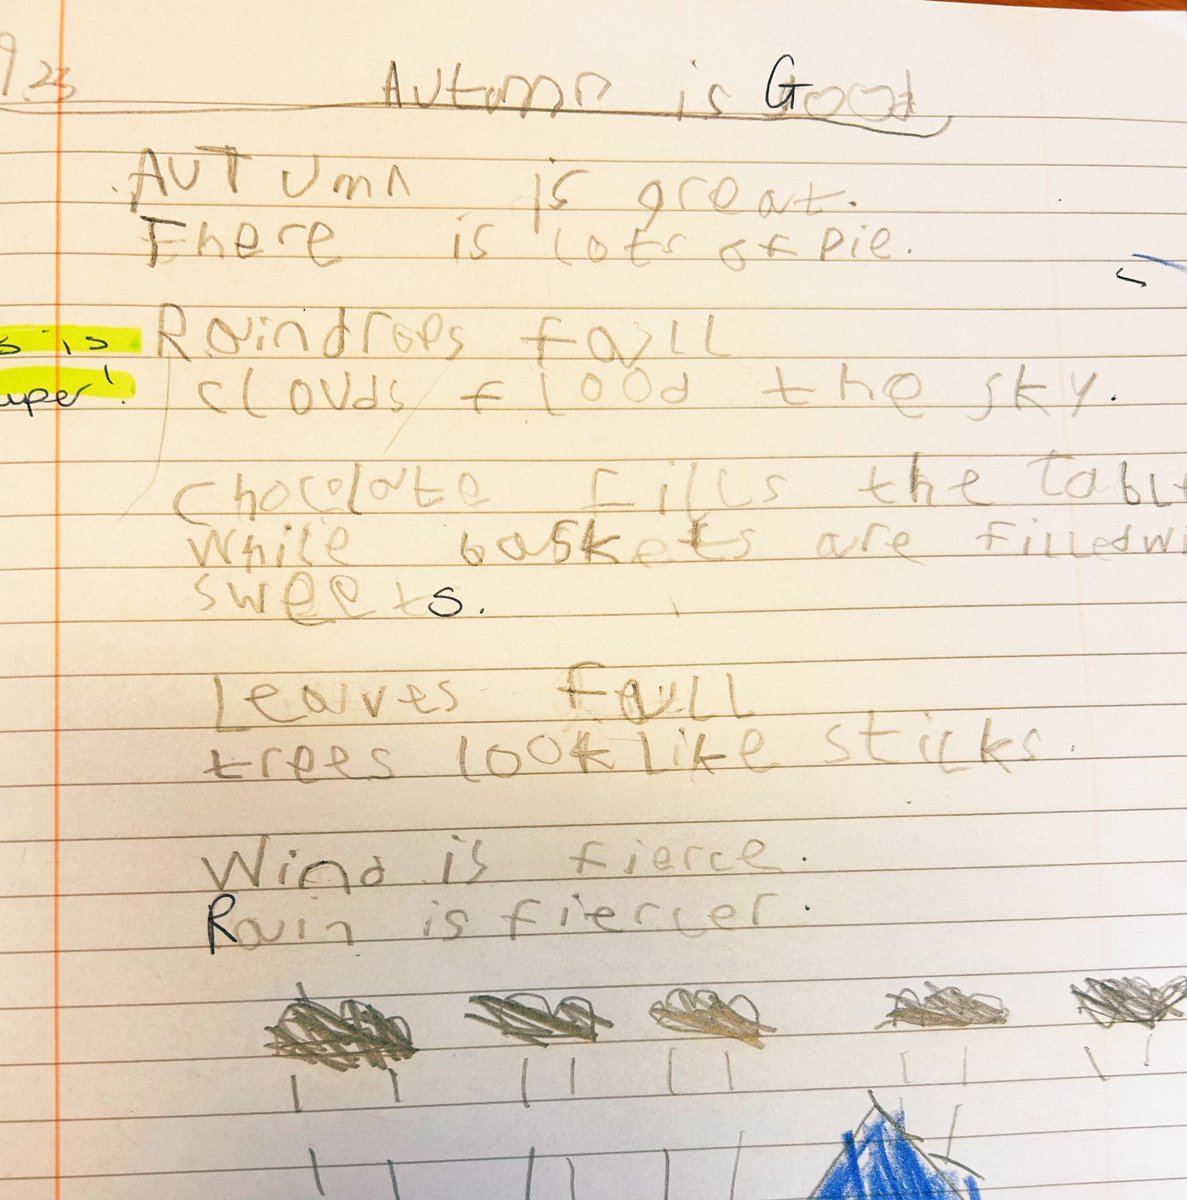 9.23
Autumn is Good
Autumn is great.
There is lots of pie.
Raindrops fall
is
clouds flood the sky.
Chocolate fills the
while baskets are filled
sweets.
Leaves fall
trees look like sticks.
Wind is fierce.
Rain is fiercer.